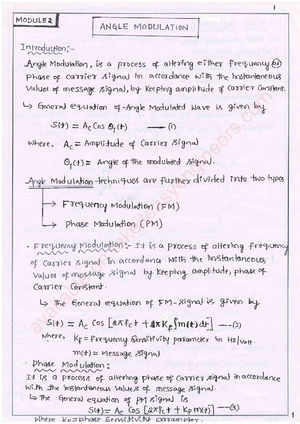 1
MODULE 2
ANGLE MODULATION
Introduction:-
Angle Modulation, is a process of altering either Frequency (or)
phase of Carrier signal in accordance with the instantaneous
Values of message signal, by keeping amplitude of Carrier Constant.
↳ General equation of Angle Modulated Wave is given by
S(t) = Ac Cos θi(t) —(1)
where, Ac = Amplitude of Carrier signal
θi(t) = Angle of the modulated signal.
Angle Modulation techniques are further divided into two types
→ Frequency Modulation (FM)
→ Phase Modulation (PM)
• Frequency Modulation:- It is a process of altering Frequency
of Carrier signal in accordance with the instantaneous
values of message signal by keeping amplitude, phase of
Carrier Constant.
↳ The General Equation of FM-signal is given by
S(t) = Ac Cos [2πfct + 2πKf∫m(t)dt] —(2)
where, Kf = Frequency Sensitivity parameter in Hz/volt.
m(t) = Message signal
• Phase Modulation:
It is a process of altering phase of Carrier signal in accordance
with the instantaneous values of message signal.
↳ The General equation of PM signal is
S(t) = Ac Cos [2πfct + Kp m(t)] —(3)
where Kp = phase Sensitivity parameter.
1